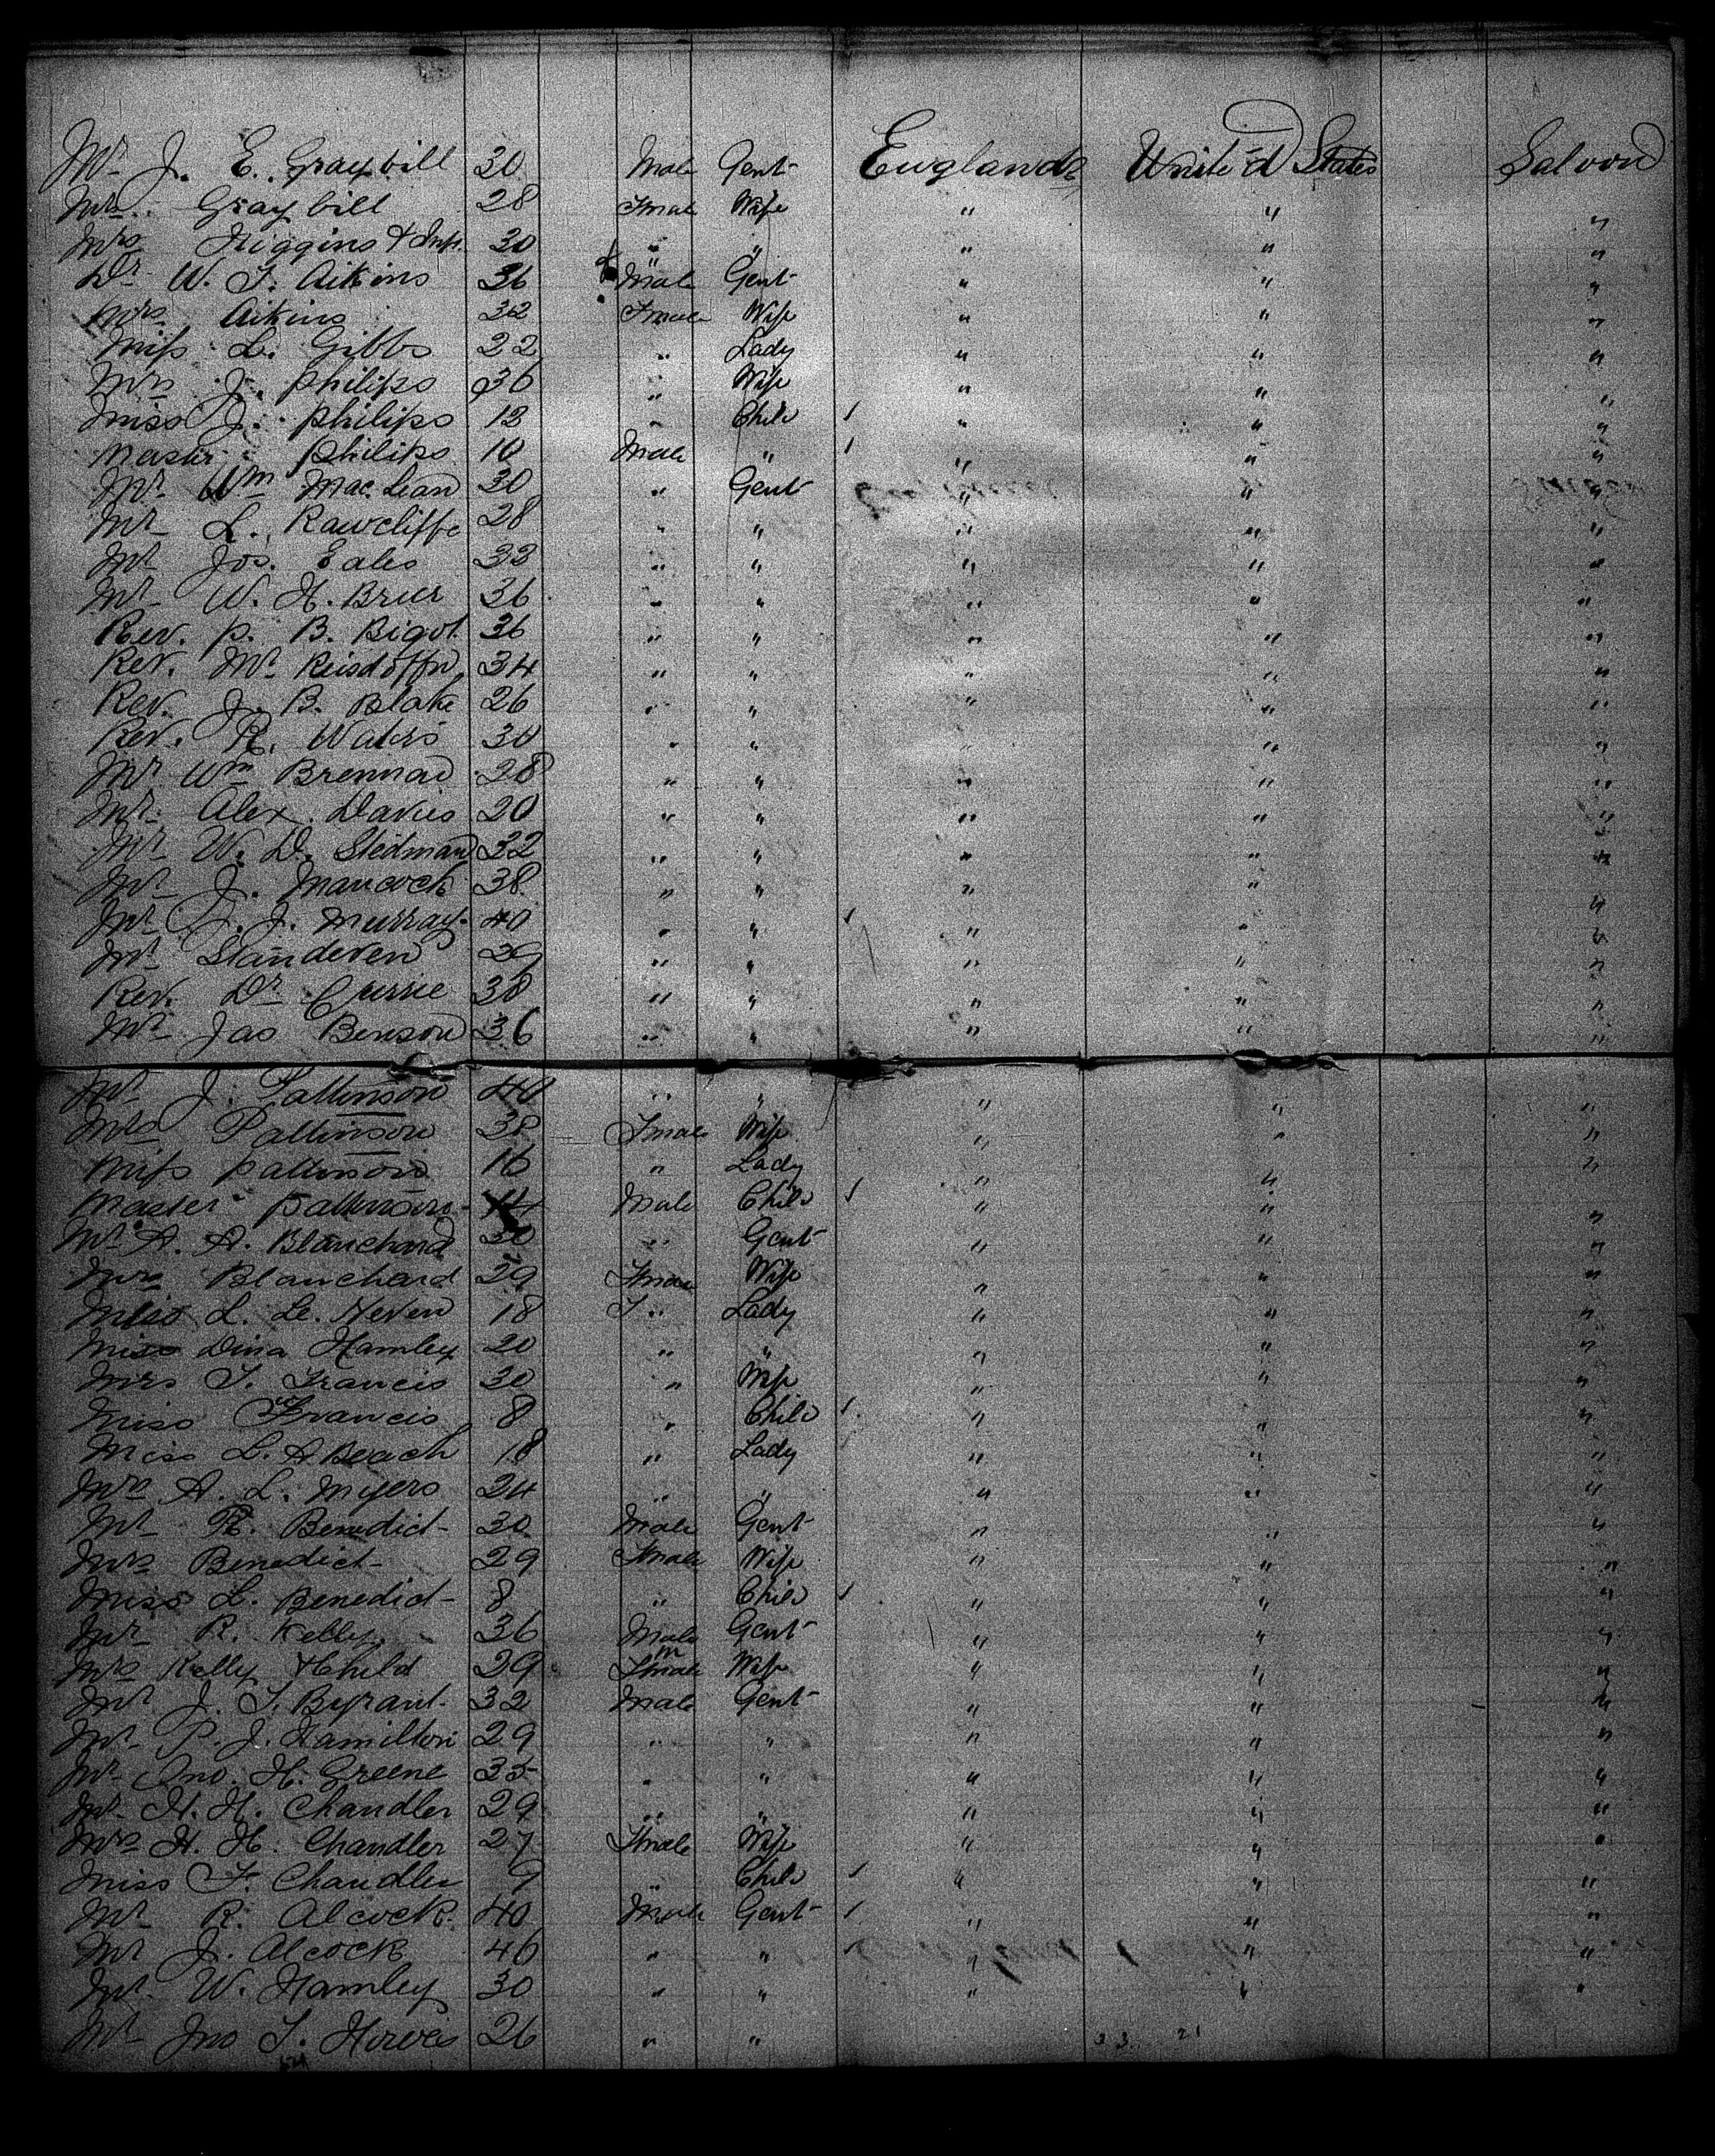 Mr J. E. Graybill 30 Male Gent England United States Saloon
Mrs. Graybill 28 Fmale Wife " " "
Mrs Higgins & Inft. 30 " " " " "
Dr W. T. Aikins 36 Male Gent " " "
Mrs Aikins 32 Fmale Wife " " "
Miss L. Gibbs 22 " Lady " " "
Mrs J. Philips 36 " Wife " " "
Miss J. Philips 12 " Child " " "
Master Philips 10 Male " " " "
Mr Wm Mac. Lean 30 " Gent " " "
Mr L. Rawcliffe 28 " " " " "
Mr Jos. Eales 33 " " " " "
Mr W. H. Brier 36 " " " " "
Rev. P. B. Bigot 36 " " " " "
Rev. Mr 34 " " " " "
Rev. J. B. Blake 26 " " " " "
Rev. R. Waters 30 " " " " "
Mr Wm Brennad 28 " " " " "
Mr. Alex. Davies 20 " " " " "
Mr W. D. Stedman 32 " " " " "
Mr J. Mancock 38 " " " " "
Mr J. J. Murray 40 " " " " "
Mr Standeven 29 " " " " "
Rev. Dr Currie 38 " " " " "
Mr Jas Benson 36 " " " " "
Mr J. Pattinson 40 " " " " "
Mrs Pattinson 38 Fmale Wife " " "
Miss Pattinson 16 " Lady " " "
Master Pattinson 14 Male Child " " "
Mr A. A. Blanchard 30 " Gent " " "
Mrs Blanchard 29 Fmale Wife " " "
Miss L. Le. Neven 18 F " Lady " " "
Miss Dina Hamley 20 " " " " "
Mrs T. Francis 30 " Wife " " "
Miss Francis 8 " Child " " "
Miss L. A Beach 18 " Lady " " "
Mrs A. L. Myers 24 " " " " "
Mr R. Benedict 30 Male Gent " " "
Mrs Benedict 29 Fmale Wife " " "
Miss L. Benedict 8 " Child " " "
Mr R. Kelly 36 Male Gent " " "
Mrs Kelly & Child 29 Fmale m Wife " " "
Mr J. T. Byrant 32 Male Gent " " "
Mr P. J. Hamilton 29 " " " " "
Mr Jno. H. Greene 35 " " " " "
Mr H. H. Chandler 29 " " " " "
Mrs H. H. Chandler 27 Fmale Wife " " "
Miss F. Chandler 9 " Child " " "
Mr R. Alcock 40 Male Gent " " "
Mr J. Alcock 46 " " " " "
Mr W. Hamley 30 " " " " "
Mr Jno T. 26 " " 33 21